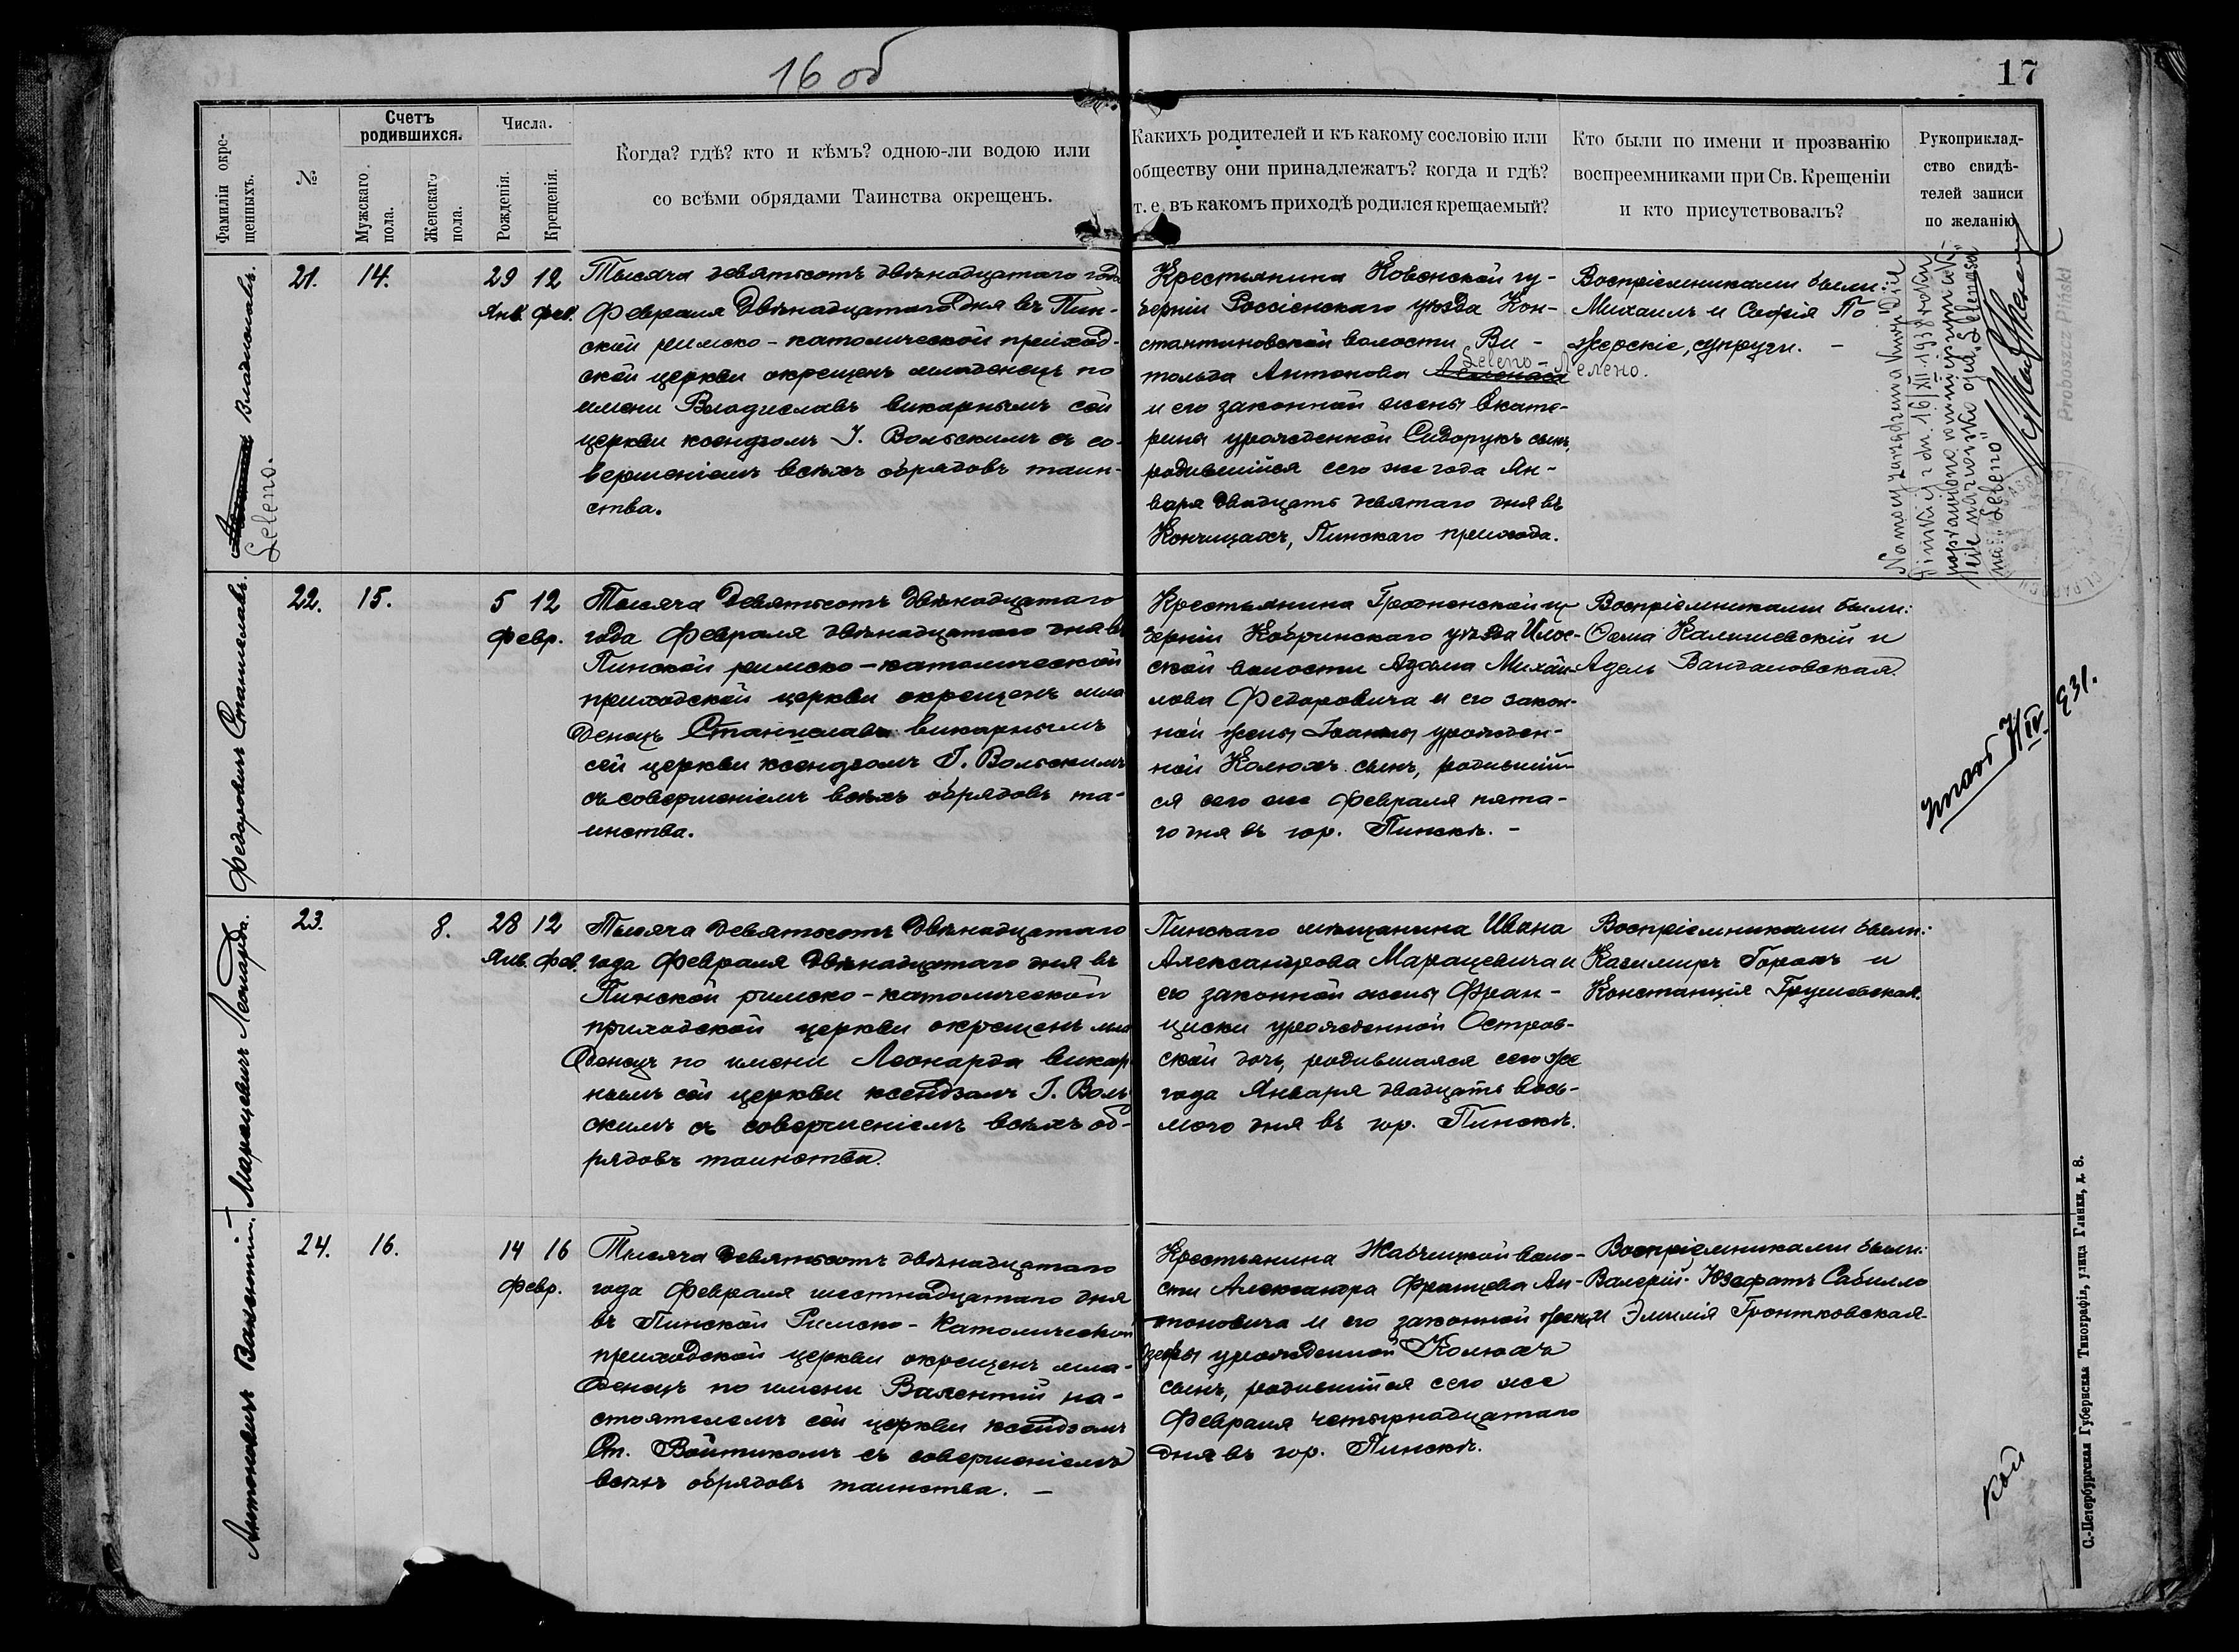 16 об
17
Фамиліи окре-
щенныхъ.
№
Счетъ
родившихся.
Мужскаго
пола.
Женскаго
пола.
Числа.
Рожденія.
Крещенія.
Когда? гдѣ? кто и кѣмъ? одною-ли водою или
со всѣми обрядами Таинства окрещенъ.
Какихъ родителей и къ какому сословію или
обществу они принадлежатъ? когда и гдѣ?
т. е. въ какомъ приходѣ родился крещаемый?
Кто были по имени и прозванію
воспреемниками при Св. Крещеніи
и кто присутствовалъ?
Рукоприклад-
ство свидѣ-
телей записи
по желанію
Владиславъ.
Leleno.
21.
14.
29 12
Янв. Фев.
Тысяча девятьсотъ двѣнадцатаго года
Февраля Двѣнадцатаго дня въ Пин-
ской римско-католической приход-
ской церкви окрещенъ младенецъ по
имени Владиславъ викарнымъ сей
церкви ксендзомъ І. Вольскимъ съ со-
вершеніемъ всѣхъ обрядовъ таин-
ства.
Крестьянина Ковенской гу-
берніи Россіенскаго уѣзда Кон-
стантиновской волости Ви-
тольда Антонова Leleno - Лелено.
и его законной жены Екате-
рины урожденной Сидорукъ сынъ,
родившійся сего же года Ян-
варя двадцать девятаго дня въ
Кончицахъ, Пинскаго прихода.
Воспріемниками были:
Михаилъ и Софія По
жерскіе, супруги. -
Na mocy zarządzenia Kurji Die
Pińskiej z dn. 16/XII 1938 roku
poprawiono w niniejszym akt-
cie nazwisko ojca „Lelenasa"
na „Leleno"
Proboszcz Piński
Федоровичъ Станиславъ.
22.
15.
5 12
Февр.
Тысяча Девятьсотъ двѣнадцатаго
года Февраля двѣнадцатаго дня въ
Пинской римско-католической
приходской церкви окрещенъ мла
денецъ Станиславъ викарнымъ
сей церкви ксендзомъ І. Вольскимъ
съ совершеніемъ всѣхъ обрядовъ та-
инства.
Крестьянина Гродненской гу
берніи Кобринскаго уѣзда Илос-
ской волости Адама Михаи-
лова Федоровича и его закон-
ной жены Іоанны урожден-
ной Колюхъ сынъ, родившій-
ся сего же Февраля пята-
го дня въ гор. Пинскѣ. -
Воспріемниками были:
Осипъ Калишевскій и
Адель Вандаловская.
Марацевичъ Леонарда.
23.
8.
28 12
Янв. Фев.
Тысяча девятьсотъ Двѣнадцатаго
года Февраля Двѣнадцатаго дня въ
Пинской римско-католической
приходской церкви окрещенъ мла
денецъ по имени Леонарда викар
нымъ сей церкви ксендзомъ І. Воль
скимъ съ совершеніемъ всѣхъ об-
рядовъ таинства.
Пинскаго мѣщанина Ивана
Александрова Марацевича и
его законной жены Фран-
циски урожденной Остров-
ской дочь, родившаяся сего же
года Января двадцать вось-
мого дня въ гор. Пинскѣ.
Воспріемниками были:
Казимиръ Горохъ и
Констанція Грушевская.
Антоновичъ Валентій.
24.
16.
14 16
Февр.
Тысяча Девятьсотъ двѣнадцатаго
года Февраля шестнадцатаго дня
въ Пинской Римско-Католической
приходской церкви окрещенъ мла-
денецъ по имени Валентій на-
стоятелемъ сей церкви ксендзомъ
Вл. Войтикомъ съ совершеніемъ
всѣхъ обрядовъ таинства. -
Крестьянина Жабчицкой воло-
сти Александра Францева Ан-
тоновича и его законной жены
урожденной Колюхъ
сынъ, родившійся сего же
Февраля четырнадцатаго
дня въ гор. Пинскѣ.
Воспріемниками были:
Валерій-Юзафатъ Сабилло
и Эмилія Гронтковская.
С.-Петербургская Губернская Типографія, улица Глинки, д. 8.